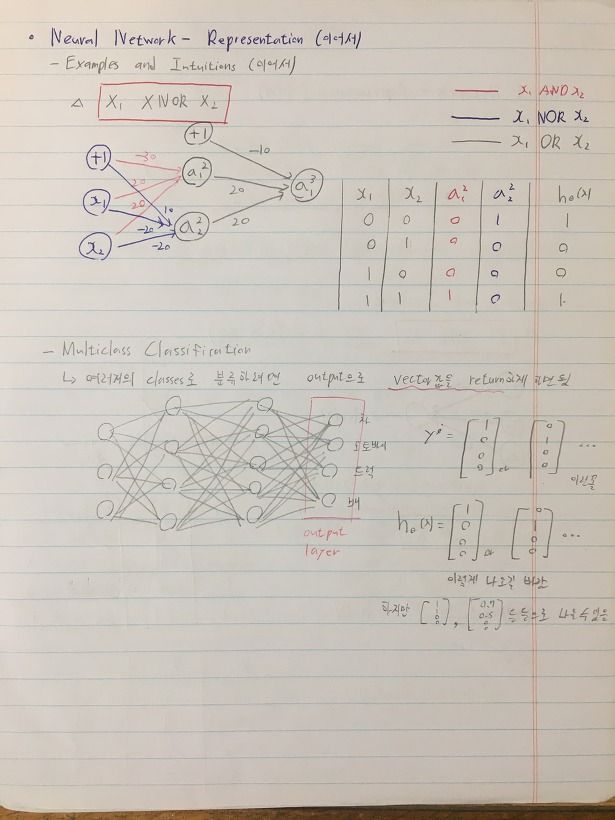 • Neural Network - Representation (이어서)
- Examples and Intuitions (이어서)
△ X₁ XNOR X₂
x₁ AND x₂
x₁ NOR x₂
x₁ OR x₂
+1
-10
+1 -30 a₁² 20 a₁³
20
x₁ 20 10 a₂² 20
-20
x₂ -20
x₁ x₂ a₁² a₂² hθ(x)
0 0 0 1 1
0 1 0 0 0
1 0 0 0 0
1 1 1 0 1
- Multiclass Classification
↳ 여러개의 classes로 분류하려면 output으로 vector값을 return하게 하면 됨
차
오토바이
트럭
배
output
layer
yⁱ = [1 0 0 0] or [0 1 0 0] ...
이런걸
hθ(x) = [1 0 0 0] or [0 1 0 0] ...
이렇게 나오길 바람
하지만 [1 1 0], [0.7 0.5 0] 등등으로 나올수있음